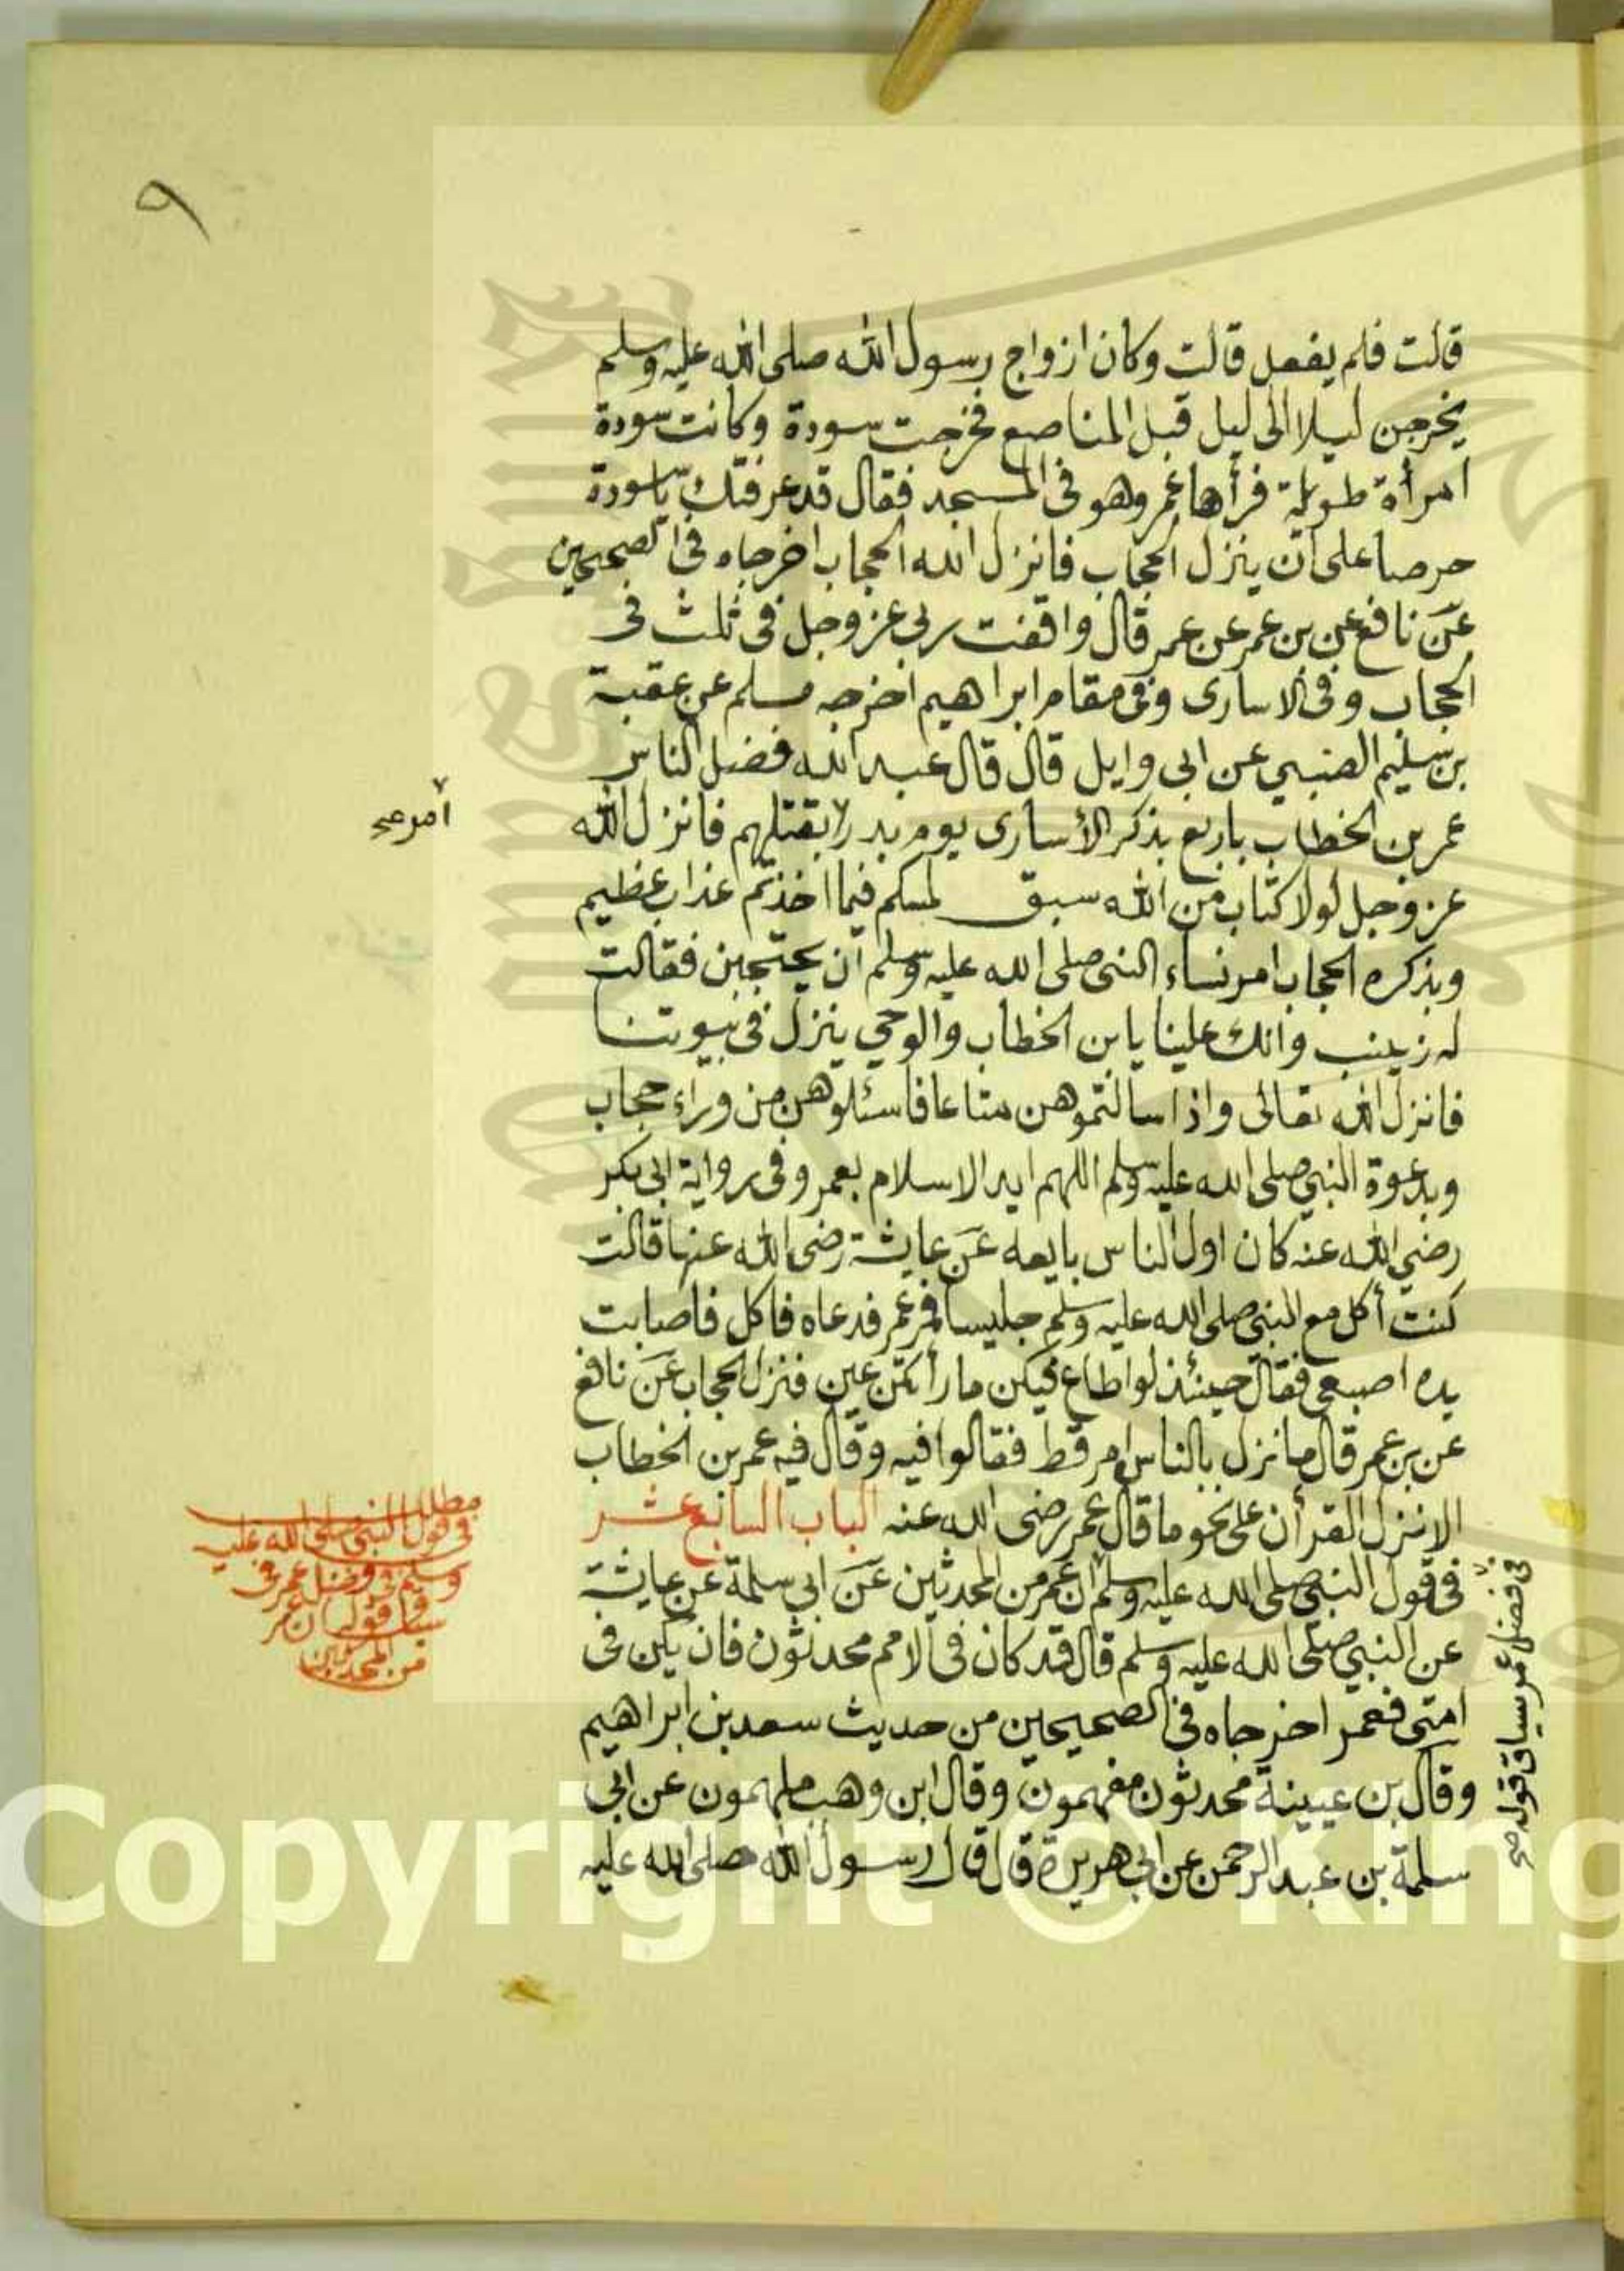 ٩
قالت فلم يفعل قالت وكان ازواج رسول الله صلى الله عليه وسلم
يخرجن ليلا الى ليل قبل المناصع فخرجت سودة وكانت سودة
امرأة طويلة فرأها عمر وهو فى المسجد فقال قد عرفتك ياسودة
حرصا على ان ينزل الحجاب فانزل الله الحجاب اخرجاه فى الصحيحين
عن نافع عن بن عمر عن عمر قال وافقت ربى عز وجل فى ثلث فى
الحجاب وفى الاسارى وفى مقام ابراهيم اخرجه مسلم عن عقبة
بن سليم الضبي عن ابى وايل قال قال عبد الله فضل الناس
عمر بن الخطاب باربع بذكر الأسارى يوم بدر بقتلهم فانزل الله
امر صح
عز وجل لولا كتاب من الله سبق لمسكم فيما اخذتم عذاب عظيم
وبذكره الحجاب امر نساء النبى صلى الله عليه وسلم ان يحتجبن فقالت
له زينب وانك علينا يا بن الخطاب والوحي ينزل فى بيوتنا
فانزل الله تعالى واذا سالتموهن متاعا فاسئلوهن من وراء حجاب
وبدعوة النبي صلى الله عليه وسلم اللهم ايد الاسلام بعمر وفى رواية ابى بكر
رضي الله عنه كان اول الناس بايعه عن عايشة رضى الله عنها قالت
كنت أكل مع النبي صلى الله عليه وسلم حيسا فمر عمر فدعاه فاكل فاصابت
يده اصبعى فقال حينئذ لو اطاع فيكن ما رأتكن عين فنزل الحجاب عن نافع
عن بن عمر قال ما نزل بالناس امر قط فقالوا فيه وقال فيه عمر بن الخطاب
الا نزل القرأن على نحو ما قال عمر رضى الله عنه الباب السابع عشر
فى قول النبي صلى الله عليه وسلم ان عمر من المحدثين عن ابى سلمة عن عايشة
عن النبي صلى الله عليه وسلم قال قد كان فى الامم محدثون فان يكن فى
امتى فعمر اخرجاه فى الصحيحين من حديث سعد بن ابراهيم
وقال بن عيينة محدثون مفهمون وقال ابن وهب ملهمون عن ابى
سلمة بن عبد الرحمن عن ابى هريرة قال قال رسول الله صلى الله عليه
مطلب
فى قول النبى صلى الله عليه
وسلم فى فضل عمر فى
سياق قوله ان عمر
من المحدثين
فى فضل عمر سياق قوله صح
Copyright © King